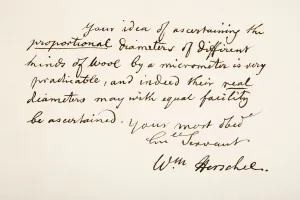 Your idea of ascertaining the
proportional diameters of different
kinds of Wool by a micrometer is very
practicable, and indeed their real
diameters may with equal facility
be ascertained. Your most obed^t
hu^{ble} Servant
W^m Herschel.